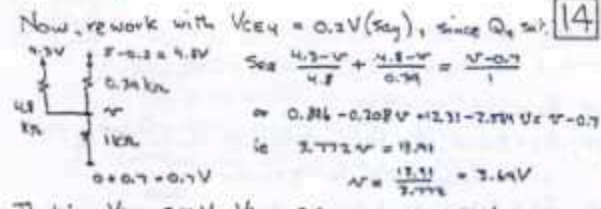 Now, rework with VCE4 = 0.2V (say), since Q4 sat.
14
4.3V 5-0.2 = 4.8V
0.39 kΩ
4.8 kΩ
v
1kΩ
0+0.7 = 0.7V
See (4.3-v)/4.8 + (4.8-v)/0.39 = (v-0.7)/1
or 0.896 - 0.208v + 12.31 - 2.564v = v - 0.7
ie 3.772v = 13.91
v = 13.91/3.772 = 3.69V